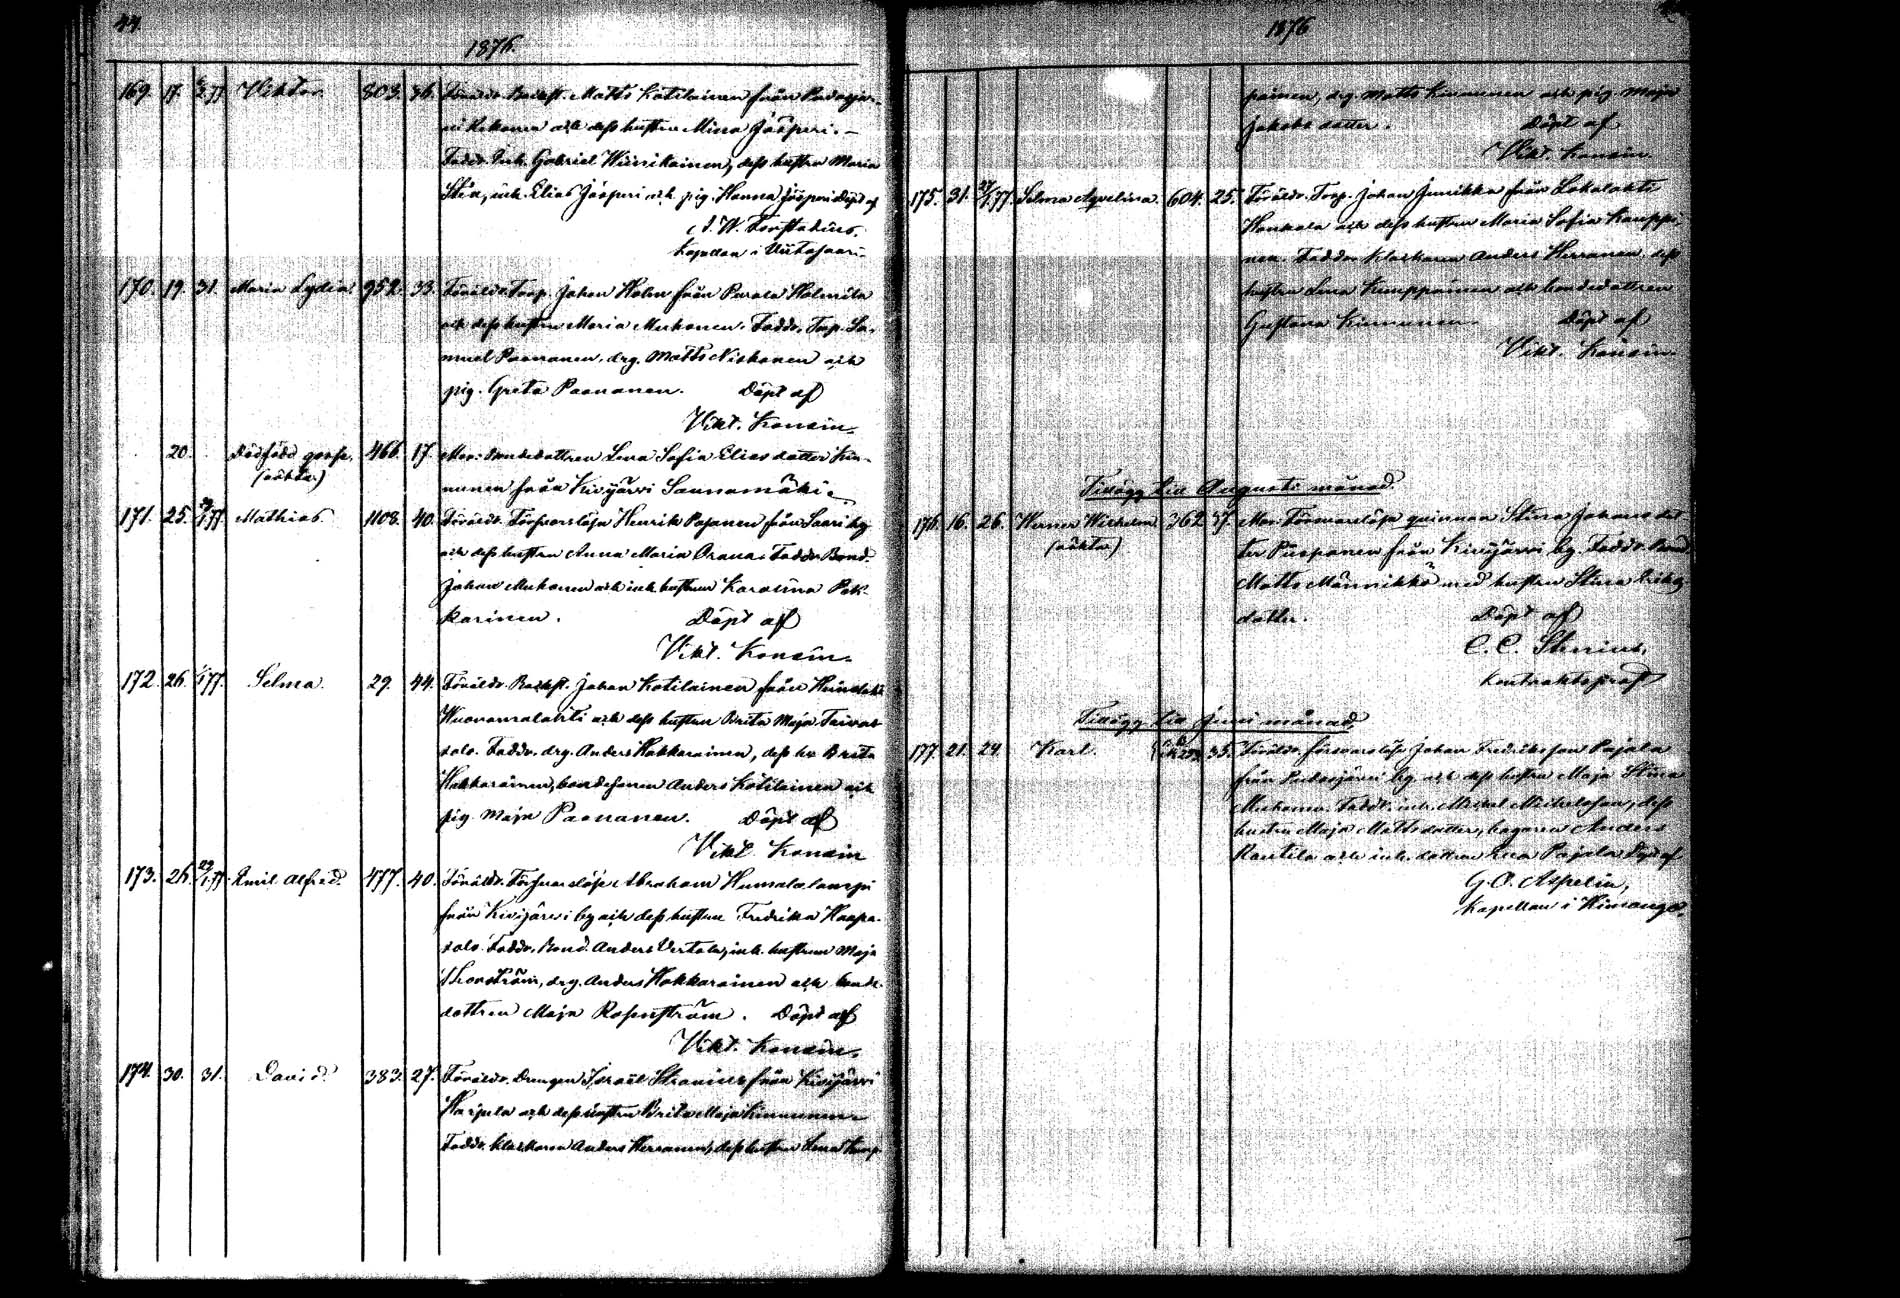 44
1876.
169. 17. Viktor. 803. 36. Föräldr. Backst. Matts Kotilainen från
och dess hustru Mina Jäsperi. –
Faddr. Inh. Gabriel Hinrikainen, dess hustru Maria
Stina, inh. Elias Jäsperi och pig. Hanna Jäsperi Döpt af
W. Forstadius
Kapellan i Viitasaari.
170. 19. 31. Maria Lydia. 952. 33. Föräldr. Torp. Johan Holm från Purala Holmila
och dess hustru Maria Muhonen. Faddr. Torp. Sa-
muel Paananen, drg. Matts Niskanen och
pig. Greta Paananen. Döpt af
Vikt. Konsin.
20. Dödfödd goss. 466. 17. Mor: Bondedottren Lena Sofia Elias dotter Kin-
(oäkta)
nunen från Kivijärvi Saunamäki.
171. 25. Mathias. 1108. 40. Föräldr. Försvarslöse Henrik Pajanen från Saari by
och dess hustru Anna Maria Faddr. Bond.
Johan Muhonen och inh. hustrun Karolina Pek-
karinen. Döpt af
Vikt. Konsin.
172. 26. 1/1 77. Selma. 29. 44. Föräldr. Backst. Johan Kotilainen från
Wuorensalahti och dess hustru Brita Maja Taival-
salo. Faddr. drg. Anders Hakkarainen, dess hu Brita
Hakkarainen, bondesonen Anders Kotilainen och
pig. Maja Paananen. Döpt af
Vikt. Konsin
173. 26. 29/1 77. Emil Alfred. 477. 40. Föräldr. Försvarslöse Abraham Humalalampi
från Kivijärvi by och dess hustru Fredrika Haapa-
salo. Faddr. Bond. Anders Urtola, inh. hustrun Maja
drg. Anders Hakkarainen och bonde-
dottren Maja Rosenström. Döpt af
Vikt. Konsin.
174. 30. 31. David. 383. 27. Föräldr. Drengen Israël Stranius från Kivijärvi
Harjula och dess hustru Brita Maja Kinnunen.
Faddr. Klockaren Anders Herranen, dess hustru Lena Kump-
1876
painen, drg. Matts Kinnunen och pig. Maja
Jakobs dotter. Döpt af
Vikt. Konsin.
175. 31. 27/1 77. Selma Aqvelina. 604. 25. Föräldr. Torp. Johan Junikka från Lokalahti
Honkala och dess hustru Maria Sofia Kauppi-
nen. Faddr. Klockaren Anders Herranen, dess
hustru Lena Kumppainen och bondedottren
Gustava Kinnunen. Döpt af
Vikt. Konsin.
Tillägg till Augusti månad.
176. 16. 26. Werner Wilhelm. 362. 37. Mor. Försvarslösa qvinnan Stina Johans dot-
(oäkta)
ter Piispanen från Kivijärvi by. Faddr. Bond.
Matts Männikkö med hustru Stina Eriks
dotter. Döpt af
C. C. Stenius,
Kontraktsprost
Tillägg till Juni månad.
177. 21. 24. Karl. 35. Föräldr. försvarslöse Johan Fredriksson Pajala
från Pudasjärvi by och dess hustru Maja Stina
Muhonen. Faddr. inh. Mickel Mickelsson, dess
hustru Maja Mattsdotter, bagaren Anders
Rautila och inh. dottren Lena Pajala Döpt af
G. O. Aspelin,
Kapellan i Himango.